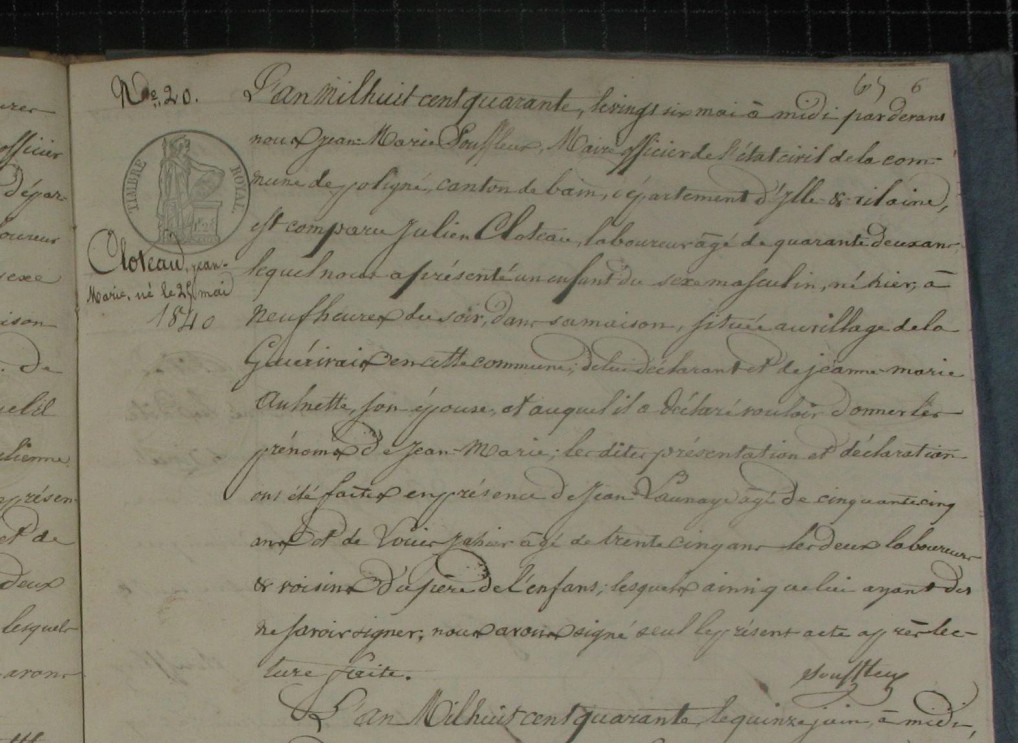 urer
officier
Dépar
oureur
sexe
aison
. De
uelil
lienne
présen
et de
Deux
lesquels
avons
No. 20.
6
TIMBRE ROYAL
Cloteau, jean-
Marie, né le 25 mai
1840
L'an Mil huit cent quarante, le vingt six mai à midi par devant
nous Jean-Marie Souffleux, Maire officier de l'état civil de la com-
mune de poligné, canton de bain, département d'Ille & vilaine,
est comparu Julien Cloteau, laboureur âgé de quarante deux ans
lequel nous a présenté un enfant du sexe masculin, né hier, à
Neuf heures du soir, dans sa maison, située au village de la
en cette commune, de lui déclarant et de jeanne-marie
Aulnette, son épouse, et auquel il a déclaré vouloir donner les
prénoms de Jean-Marie; les dites présentation et déclaration
ont été faites en présence de Jean Launay âgé de cinquante cinq
ans et de Louis âgé de trente cinq ans les deux laboureurs
& voisins du père de l'enfans; lesquels ainsi que lui ayant dit
ne savoir signer, nous avons signé seul le présent acte après lec-
ture faite.
L'an Mil huit cent quarante, le quinze juin, à midi,